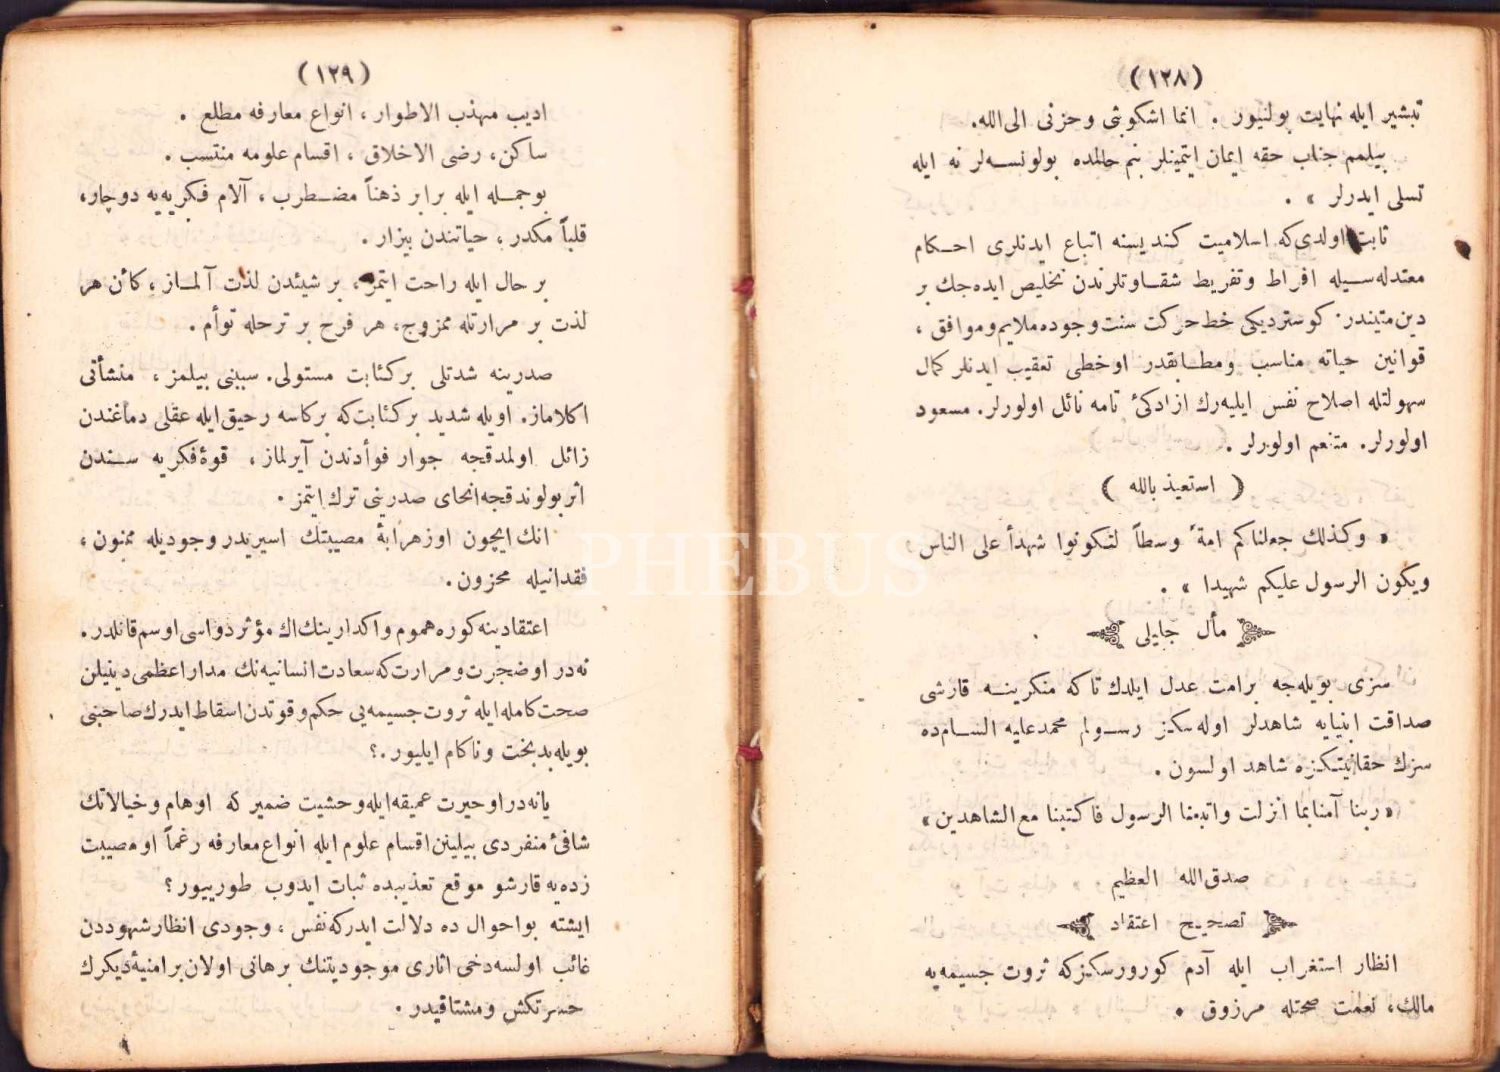 (١٢٨)
تبشیر ایله نهایت بولنیور . انما اشکوبثی وحزنی الی‌الله.
بیلمم جناب حقه ایمان ایتمینلر بنم حالمده بولونسه‌لر نه ایله
تسلی ایدرلر » .
ثابت اولدی‌که اسلامیت کندیسنه اتباع ایدنلری احکام
معتدله‌سیله افراط وتفریط شقاوتلرندن تخلیص ایده‌جك بر
دین‌متیندر. کوستردیکی خط‌حرکت سنت‌وجوده‌ملایم‌وموافق ،
قوانین حیاته مناسب ومطابقدر اوخطی تعقیب ایدنلر کمال
سهولتله اصلاح نفس ایلیه‌رك ازادکئ تامه نائل اولورلر. مسعود
اولورلر. متنعم اولورلر .
( استعیذ بالله )
« وکذلك جعلناکم امةً وسطاً لتکونوا شهدأ علی الناس
ویکون الرسول علیکم شهیدا » .
مأل جلیلی
سزی بویله‌جه برامت عدل ایلدك تاکه منکرینه قارشی
صداقت انبیایه شاهدلر اوله‌سکز رسولم محمدعلیه السلام‌ده
سزك حقانیتکزه شاهد اولسون .
«ربنا آمنابما انزلت واتبعنا الرسول فاکتبنا مع‌الشاهدین»
صدق‌الله العظیم
تصحیح اعتقاد
انظار استغراب ایله آدم کورورسکزکه ثروت جسیمه‌یه
مالك، نعمت صحتله مرزوق .
(١٢٩)
ادیب مهذب الاطوار ، انواع معارفه مطلع .
ساکن، رضی الاخلاق ، اقسام علومه منتسب .
بوجمله ایله برابر ذهناً مضطرب ، آلام فکریه‌یه دوچار،
قلباً مکدر ، حیاتندن بیزار .
بر حال ایله راحت ایتمز ، بر شیئدن لذت آلماز ، کأن هر
لذت بر مرارتله ممزوج، هر فرح بر ترحله توأم .
صدرینه شدتلی برکثابت مستولی. سببنی بیلمز ، منشأنی
اکلاماز. اویله شدید برکئابت‌که برکاسه رحیق‌ایله عقلی دماغندن
زائل اولمدقجه جوار فوأدندن آیرلماز ، قوۀفکریه سندن
اثربولوندقجه‌انحای صدرینی ترك‌ایتمز .
انك‌ایچون اوزهرابۀ مصیبتك اسیریدر وجودیله ممنون ،
فقدانیله محزون .
اعتقادینه‌کوره هموم واکدارینك‌اك مؤثردواسی‌اوسم‌قاتلدر.
نه‌در اوضجرت‌ومرارت‌که‌سعادت‌انسانیه‌نك مداراعظمی‌دینیلن
صحت‌کامله‌ایله ثروت جسیمه‌یی حکم‌وقوتدن‌اسقاط‌ایدرك‌صاحبنی
بویله‌بدبخت وناکام ایلیور .؟
یانه‌در‌اوحیرت عمیقه‌ایله‌وحشیت ضمیر که اوهام وخیالاتك
شافئ‌منفردی بیلینن‌اقسام علوم ایله انواع‌معارفه رغماً اومصیبت
زده‌یه قارشو موقع تعذیبده ثبات ایدوب طورییور ؟
ایشته بواحوال ده دلالت ایدرکه‌نفس ، وجودی انظارشهوددن
غائب اولسه‌دخی اثاری موجودیتنك برهانی اولان‌برامنیۀدیکرك
حسرتکش ومشتاقیدر .
PHEBUS